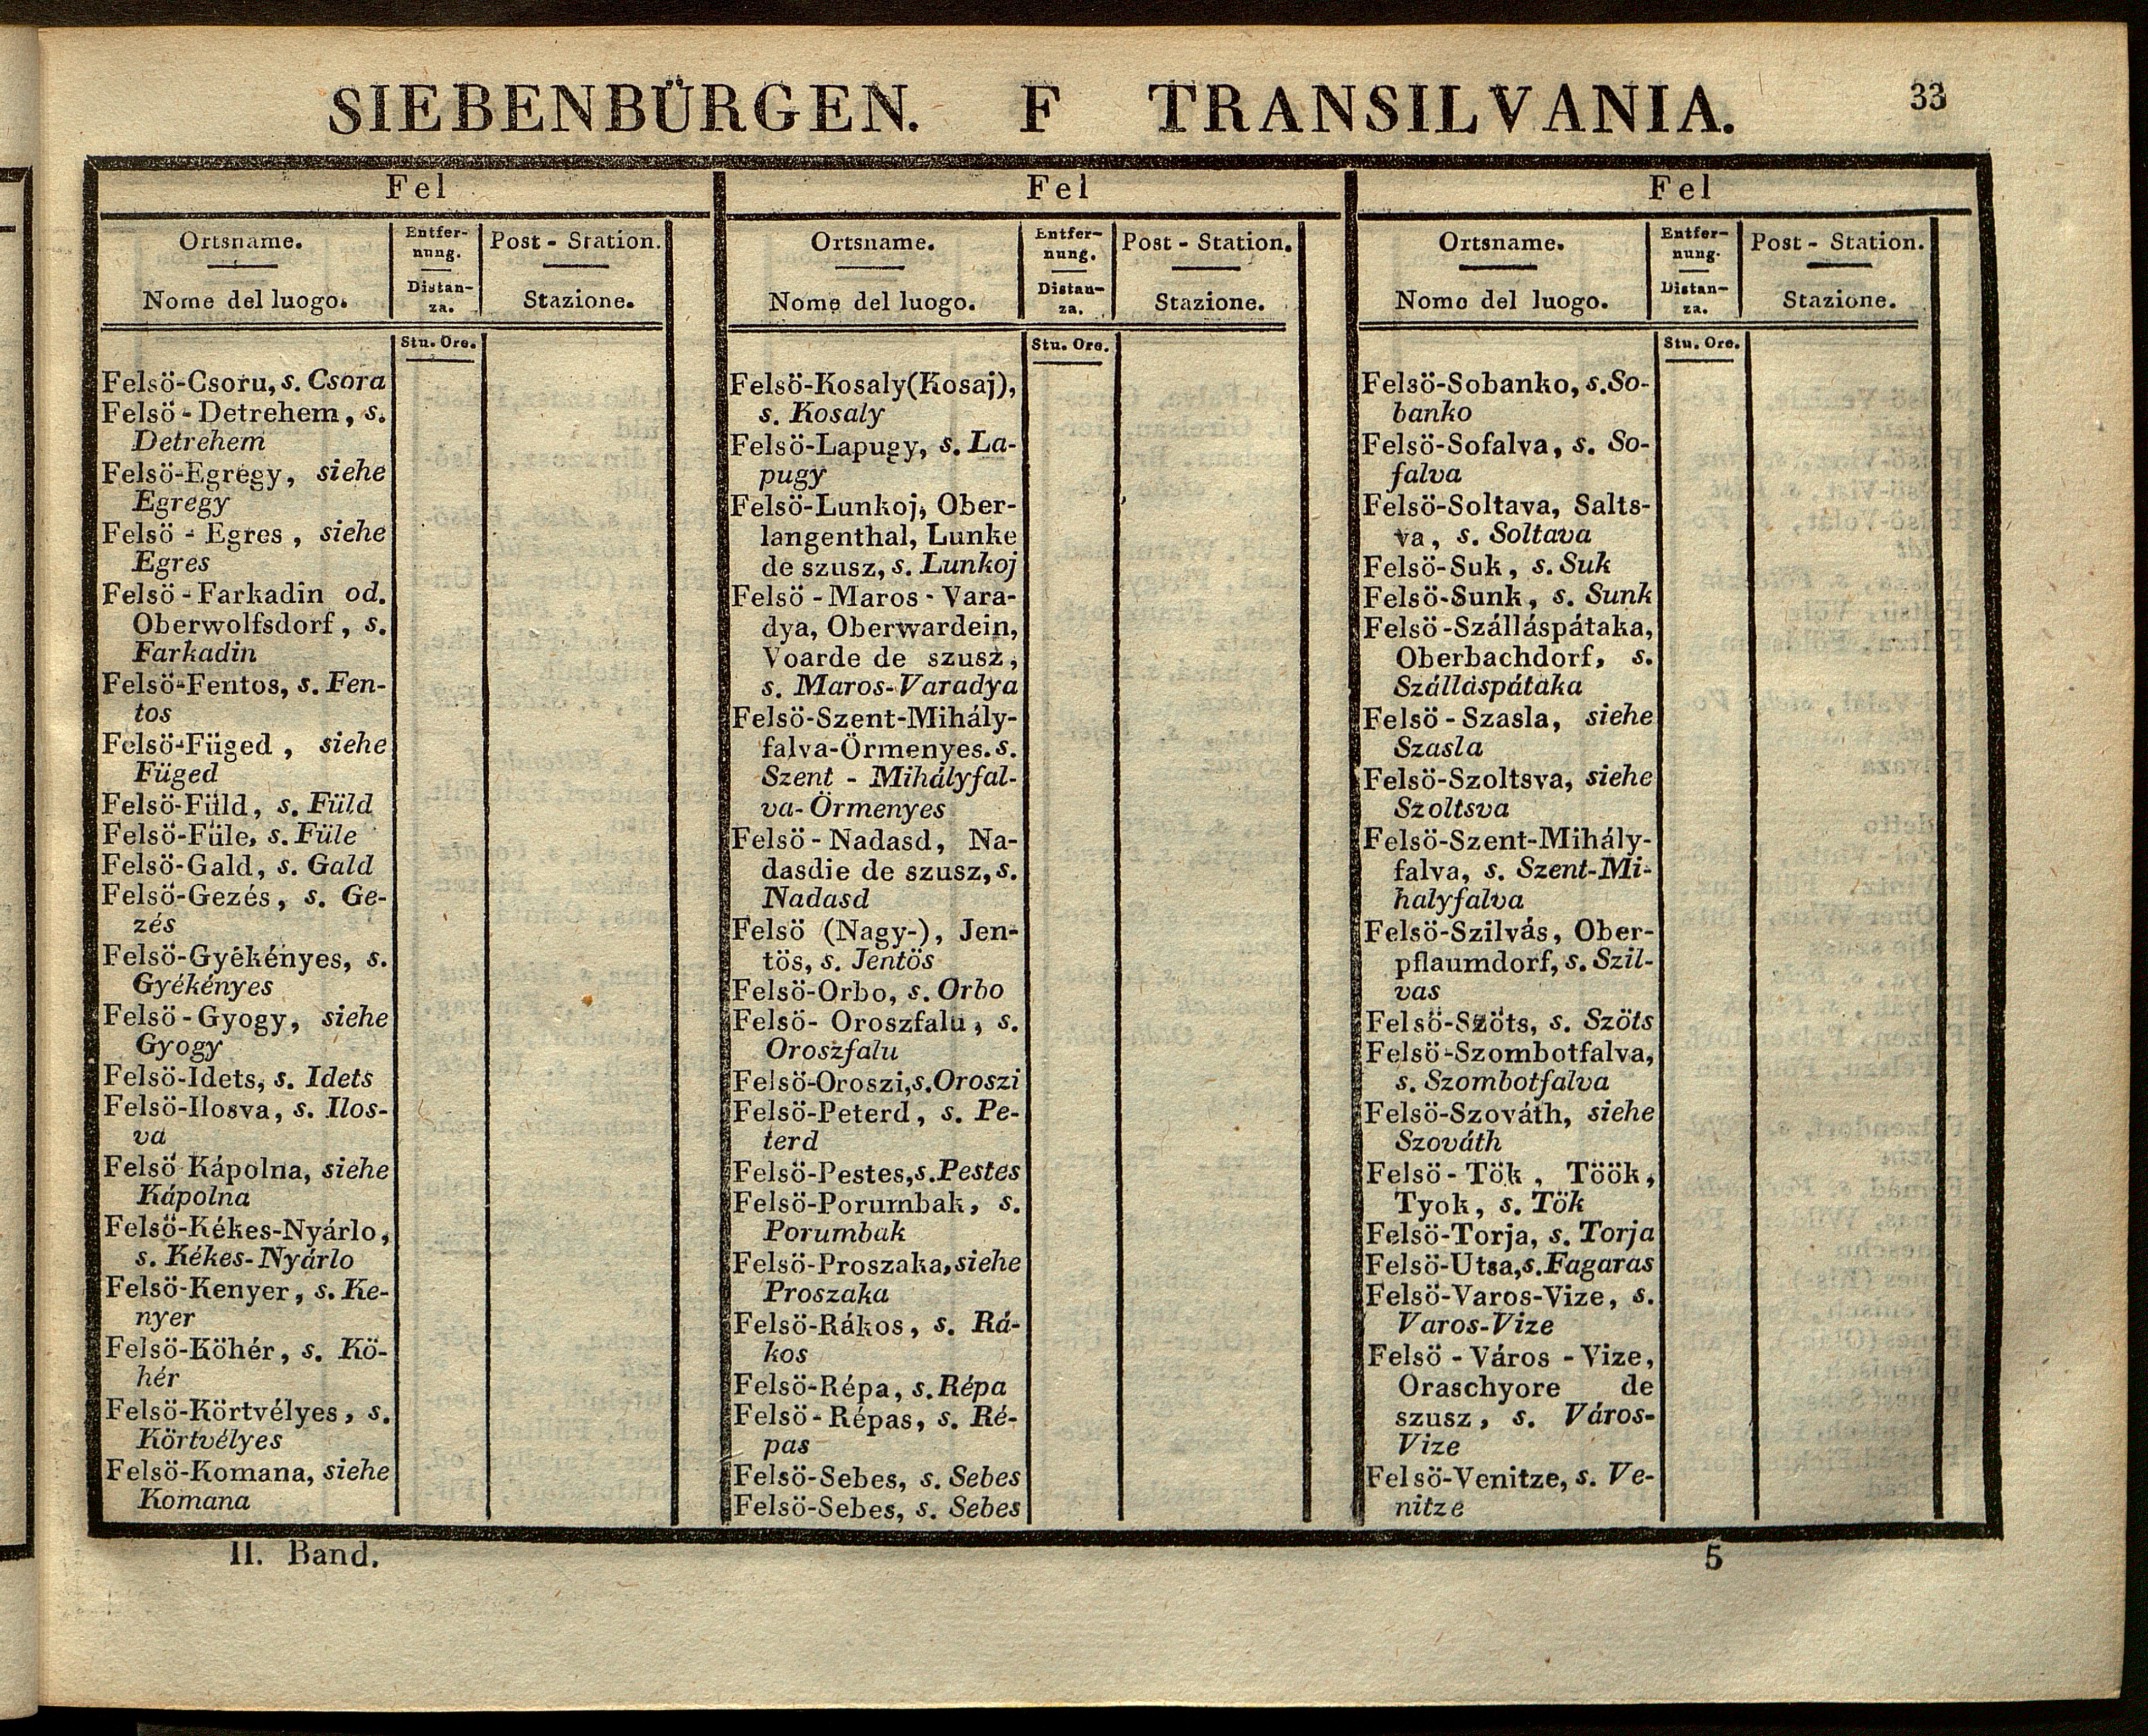 SIEBENBÜRGEN. F TRANSILVANIA. 33
Fel
Ortsname.
Nome del luogo.
Entfer-
nung.
Distan-
za.
Post - Station.
Stazione.
Stu. Ore.
Felsö-Csoru, s. Csora
Felsö - Detrehem, s.
Detrehem
Felsö-Egregy, siehe
Egregy
Felsö - Egres, siehe
Egres
Felsö - Farkadin od.
Oberwolfsdorf, s.
Farkadin
Felsö-Fentos, s. Fen-
tos
Felsö-Füged, siehe
Füged
Felsö-Füld, s. Füld
Felsö-Füle, s. Füle
Felsö-Gald, s. Gald
Felsö-Gezés, s. Ge-
zés
Felsö-Gyékényes, s.
Gyékényes
Felsö-Gyogy, siehe
Gyogy
Felsö-Idets, s. Idets
Felsö-Ilosva, s. Ilos-
va
Felsö Kápolna, siehe
Kápolna
Felsö-Kékes-Nyárlo,
s. Kékes-Nyárlo
Felsö-Kenyer, s. Ke-
nyer
Felsö-Köhér, s. Kö-
hér
Felsö-Körtvélyes, s.
Körtvélyes
Felsö-Komana, siehe
Komana
Fel
Ortsname.
Nome del luogo.
Entfer-
nung.
Distan-
za.
Post - Station.
Stazione.
Stu. Ore.
Felsö-Kosaly(Kosaj),
s. Kosaly
Felsö-Lapugy, s. La-
pugy
Felsö-Lunkoj, Ober-
langenthal, Lunke
de szusz, s. Lunkoj
Felsö - Maros - Vara-
dya, Oberwardein,
Voarde de szusz,
s. Maros-Varadya
Felsö-Szent-Mihály-
falva-Örmenyes. s.
Szent - Mihályfal-
va-Örmenyes
Felsö - Nadasd, Na-
dasdie de szusz, s.
Nadasd
Felsö (Nagy-), Jen-
tös, s. Jentös
Felsö-Orbo, s. Orbo
Felsö- Oroszfalu, s.
Oroszfalu
Felsö-Oroszi, s. Oroszi
Felsö-Peterd, s. Pe-
terd
Felsö-Pestes, s. Pestes
Felsö-Porumbak, s.
Porumbak
Felsö-Proszaka, siehe
Proszaka
Felsö-Rákos, s. Rá-
kos
Felsö-Répa, s. Répa
Felsö-Répas, s. Ré-
pas
Felsö-Sebes, s. Sebes
Felsö-Sebes, s. Sebes
Fel
Ortsname.
Nome del luogo.
Entfer-
nung.
Distan-
za.
Post - Station.
Stazione.
Stu. Ore.
Felsö-Sobanko, s. So-
banko
Felsö-Sofalva, s. So-
falva
Felsö-Soltava, Salts-
va, s. Soltava
Felsö-Suk, s. Suk
Felsö-Sunk, s. Sunk
Felsö-Szálláspátaka,
Oberbachdorf, s.
Szálláspátaka
Felsö - Szasla, siehe
Szasla
Felsö-Szoltsva, siehe
Szoltsva
Felsö-Szent-Mihály-
falva, s. Szent-Mi-
halyfalva
Felsö-Szilvás, Ober-
pflaumdorf, s. Szil-
vas
Felsö-Szöts, s. Szöts
Felsö-Szombotfalva,
s. Szombotfalva
Felsö-Szováth, siehe
Szováth
Felsö-Tök, Töök,
Tyok, s. Tök
Felsö-Torja, s. Torja
Felsö-Utsa, s. Fagaras
Felsö-Varos-Vize, s.
Varos-Vize
Felsö - Város - Vize,
Oraschyore de
szusz, s. Város-
Vize
Felsö-Venitze, s. Ve-
nitze
II. Band. 5